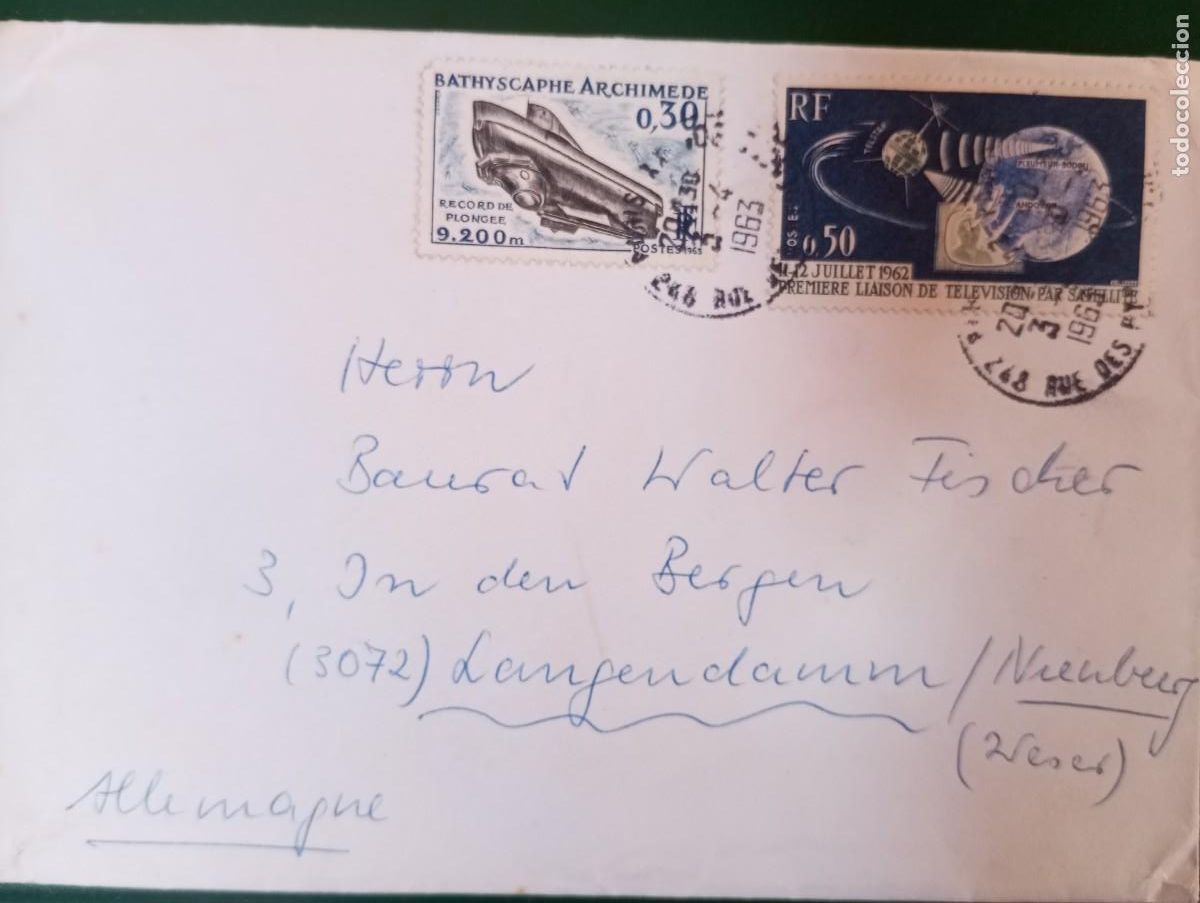 BATHYSCAPHE ARCHIMEDE
0,30
RECORD DE
PLONGEE
9.200m
POSTES 1963
RF
TELSTAR
PLEUMEUR-BODOU
ANDOVER
POSTES
0,50
11-12 JUILLET 1962
PREMIERE LIAISON DE TELEVISION PAR SATELLITE
20H30
3-4
1963
248 RUE DES
20
3
1963
248 RUE DES PY
Herrn
Baurat Walter Fischer
3, In den Bergen
(3072) Langendamm / Nienburg
(Weser)
Allemagne
todocoleccion